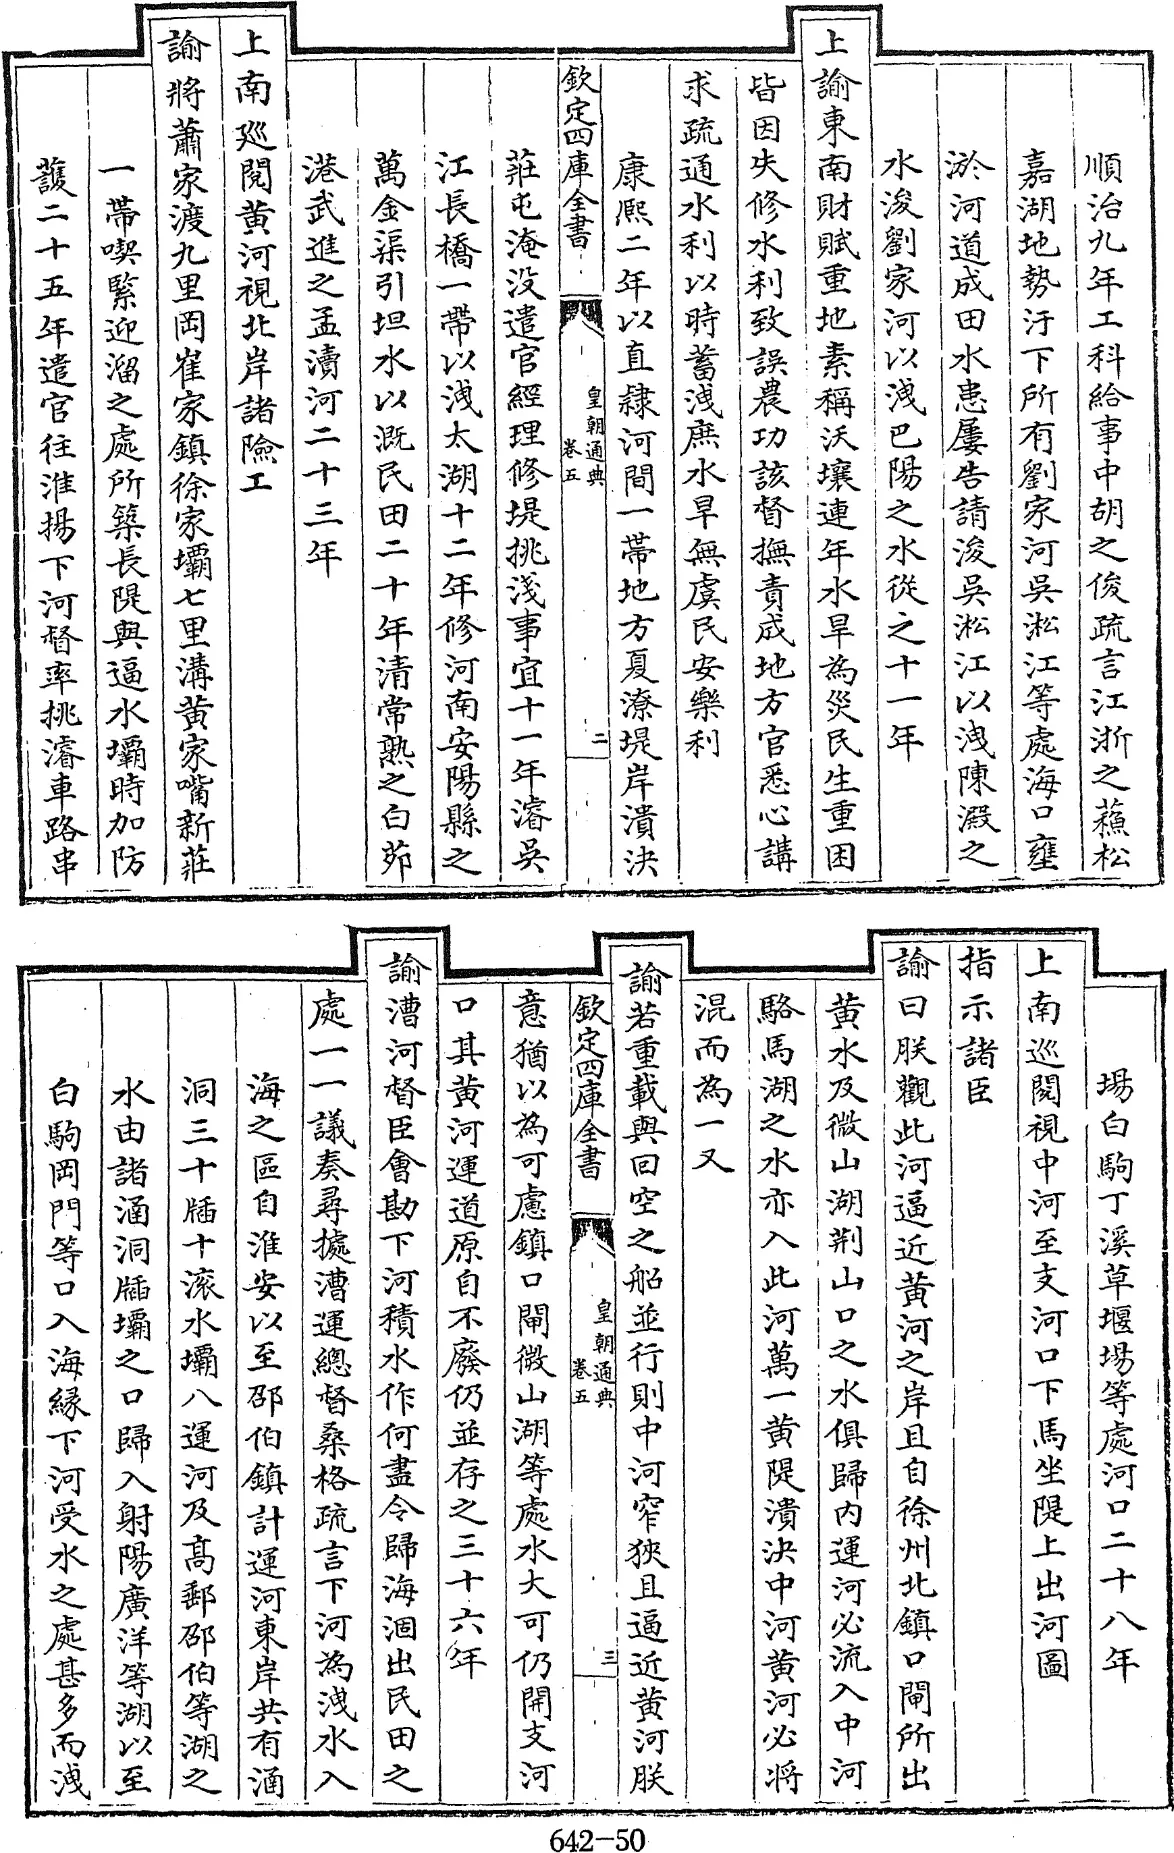 順治九年工科給事中胡之俊疏言江浙之蘓松
嘉湖地勢汙下所有劉家河吳淞江等處海口壅
淤河道成田水患屢告請浚吳淞江以洩陳澱之
水浚劉家河以洩巴陽之水從之十一年
上諭東南財賦重地素稱沃壤連年水旱為災民生重困
皆因失修水利致誤農功該督撫責成地方官悉心講
求疏通水利以時蓄洩庶水旱無虞民安樂利
康熈二年以直隸河間一帶地方夏潦堤岸潰決
欽定四庫全書
皇朝通典
卷五
二
莊屯淹没遣官經理修堤挑淺事宜十一年濬吳
江長橋一帶以洩太湖十二年修河南安陽縣之
萬金渠引坦水以溉民田二十年清常熟之白茆
港武進之孟瀆河二十三年
上南廵閱黄河視北岸諸險工
諭將蕭家渡九里岡崔家鎮徐家壩七里溝黄家嘴新莊
一帶喫緊迎溜之處所築長隄與逼水壩時加防
䕶二十五年遣官往淮揚下河督率挑濬車路串
場白駒丁溪草堰場等處河口二十八年
上南巡閱視中河至支河口下馬坐隄上出河圖
指示諸臣
諭曰朕觀此河逼近黄河之岸且自徐州北鎮口閘所出
黄水及微山湖荆山口之水俱歸内運河必流入中河
駱馬湖之水亦入此河萬一黄隄潰決中河黄河必將
混而為一又
諭若重載與回空之船並行則中河窄狹且逼近黄河朕
欽定四庫全書
皇朝通典
卷五
三
意猶以為可慮鎮口閘微山湖等處水大可仍開支河
口其黄河運道原自不廢仍並存之三十六年
諭漕河督臣會勘下河積水作何盡令歸海涸出民田之
處一一議奏尋據漕運總督桑格疏言下河為洩水入
海之區自淮安以至邵伯鎮計運河東岸共有涵
洞三十牐十滚水壩八運河及髙郵邵伯等湖之
水由諸涵洞牐壩之口歸入射陽廣洋等湖以至
白駒岡門等口入海縁下河受水之處甚多而洩
642-50